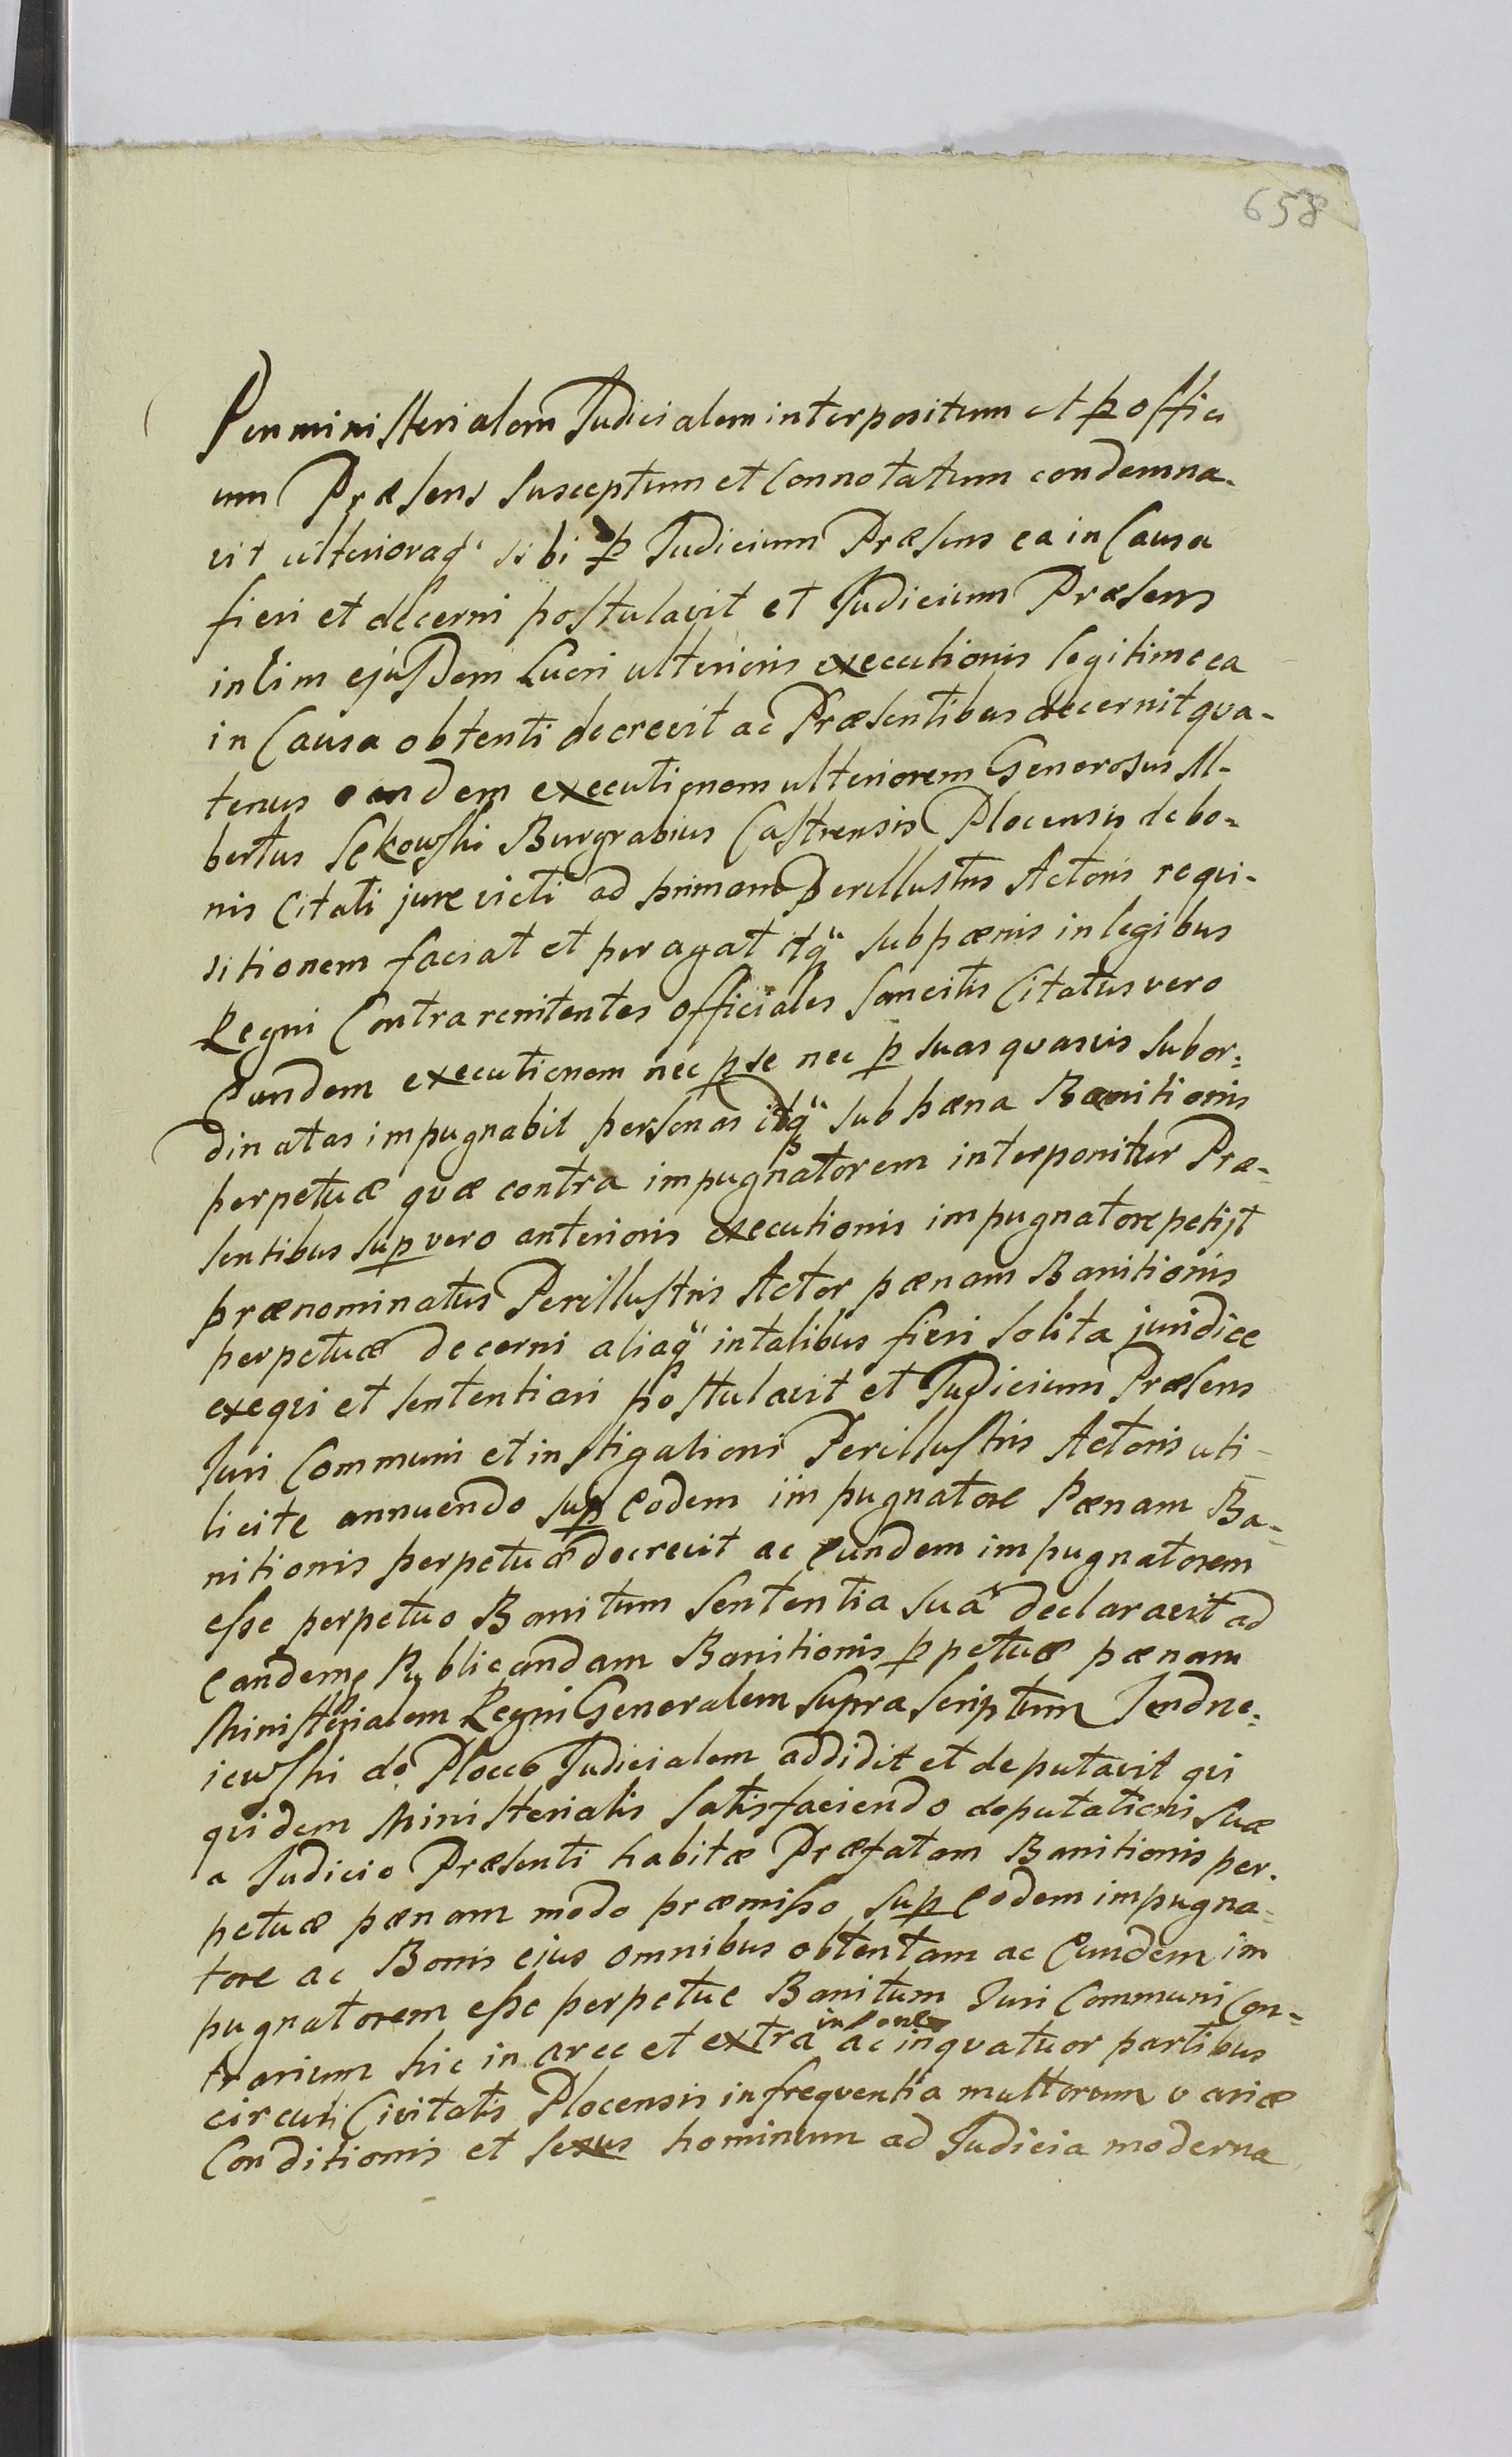 658
Per ministerialem Judicialem interpositum et p offici
um Præsens susceptum et Connotatum condemna-
vit ulterioraq sibi p Judicium Præsens ea in Causa
fieri et decerni postulavit et Judicium Præsens
in vim ejusdem Lucri ulterioris executionis legitime ea
in Causa obtenti decrevit ac Præsentibus decernit qva-
tenus eandem executionem ulteriorem Generosus Al-
bertus Sękowski Burgrabius Castrensis Plocensis de bo-
nis Citati jure victi ad primam Perillustris Actoris reqvi-
sitionem faciat et peragat idq sub pænis in legibus
Regni Contra renitentes officiales Sancitis Citatus vero
Eandem executionem nec p se nec p suas qvasvis subor-
dinatas impugnabit personas idq sub pæna Banitionis
perpetuæ qvæ contra impugnatorem interponitur Præ-
sentibus sup vero anterioris executionis impugnatore petijt
prænominatus Perillustris Actor pænam Banitionis
perpetuæ decerni aliaq in talibus fieri solita juridice
exeqvi et sententiari postulavit et Judicium Præsens
Juri Communi et instigationi Perillustris Actoris uti
licite annuendo sup eodem impugnatore Pænam Ba-
nitionis perpetuæ decrevit ac eundem impugnatorem
esse perpetuo Banitum Sententia suâ declaravit ad
eandemq Publicandam Banitionis ppetuæ pænam
Ministerialem Regni Generalem supra scriptum Jendrze-
iewski de Plocco Judicialem addidit et deputavit qvi
qvidem Ministerialis Satisfaciendo deputationi suæ
a Judicio Præsenti habitæ Præfatam Banitionis per-
petuæ pænam modo præmisso sup eodem impugna-
tore ac Bonis eius omnibus obtentam ac Eundem im
pugnatorem esse perpetue Banitum Juri Communi Con-
trarium hic in arce et extra ac in qvatuor partibus
circuli Civitatis Plocensis in freqventia multorum variæ
Conditionis et sexus hominum ad Judicia moderna